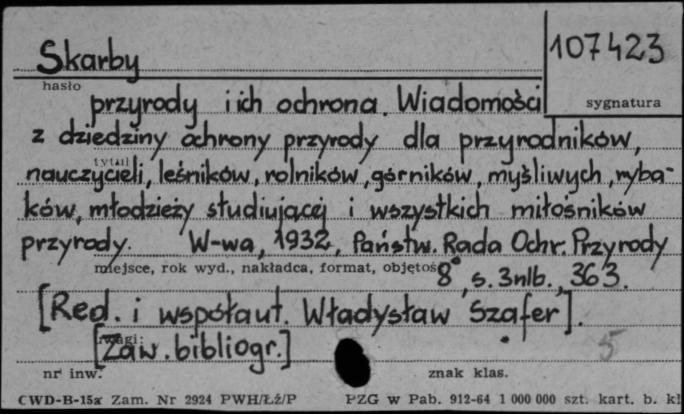 Skarby
107423
hasło
sygnatura
przyrody i ich ochrona. Wiadomości
z dziedziny ochrony przyrody dla przyrodników,
tytuł
nauczycieli, leśników, rolników, górników, myśliwych, ryba-
ków, młodzieży studiującej i wszystkich miłośników
przyrody. W-wa, 1932, Państw. Rada Ochr. Przyrody
miejsce, rok wyd., nakładca, format, objętość
8°, s. 3nlb., 363.
[Red. i współaut. Władysław Szafer].
uwagi:
[Zaw. bibliogr.]
5
nr inw.
znak klas.
CWD-B-15a Zam. Nr 2924 PWH/Łź/P
PZG w Pab. 912-64 1 000 000 szt. kart. b. kl